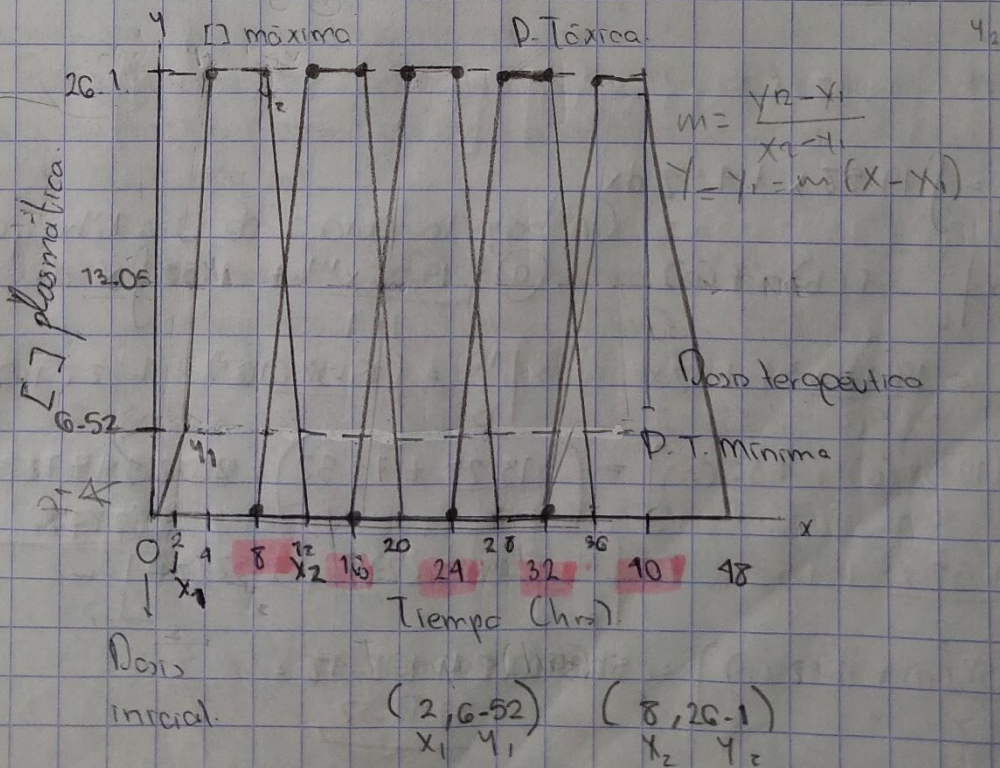 y
[] máxima
D. Tóxica
y₂
26.1
y₂
m = y2 - y1 / x2 - y1
y - y1 = m (x - x1)
[ ] plasmática.
13.05
Dosis terapéutica
6-52
y1
D. T. Mínima
P1
x
0 2 4 8 12 16 20 24 28 32 36 40 48
x1 x2
Tiempo (hrs)
Dosis
inicial.
(2, 6-52) (8, 26-1)
x1 y1 x2 y2